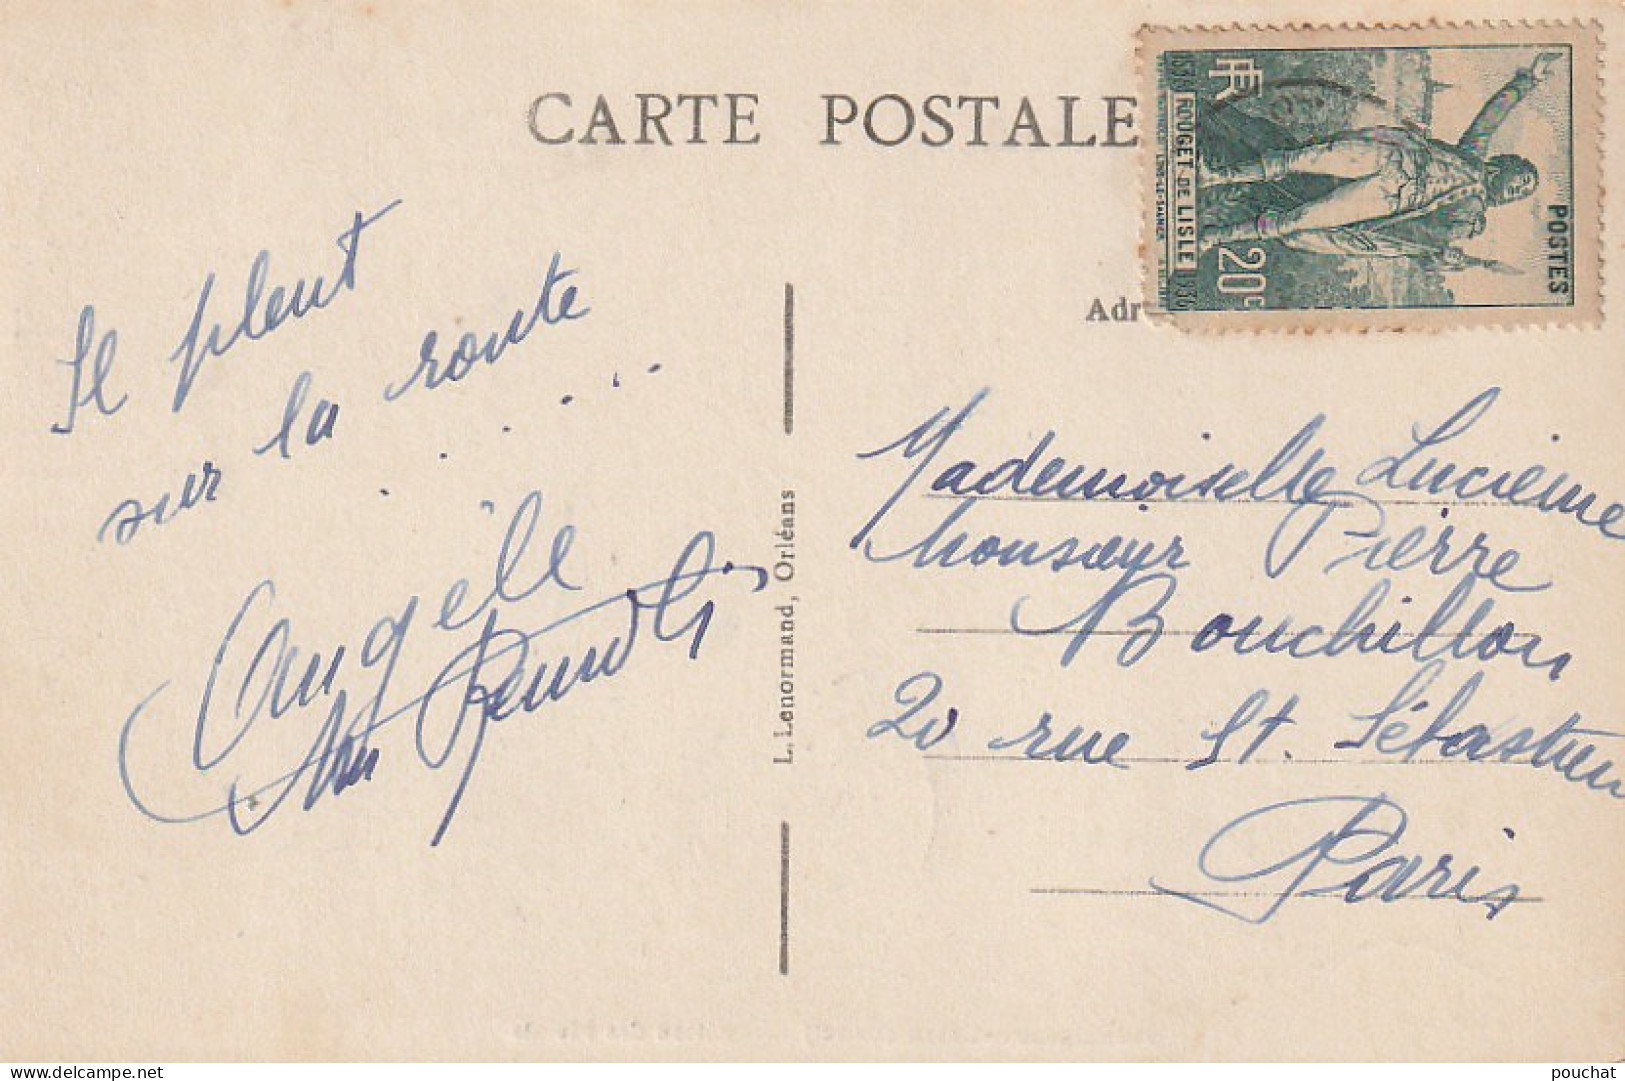 CARTE POSTALE
RF
1836 ROUGET DE LISLE 1936
20c
POSTES
Adr
Il pleut
sur la route
. . . . . .
Angèle
L. Lenormand, Orléans
Mademoiselle Lucienne
Monsieur Pierre
Bouchillon
20 rue St. Sébastien
Paris
pouchat